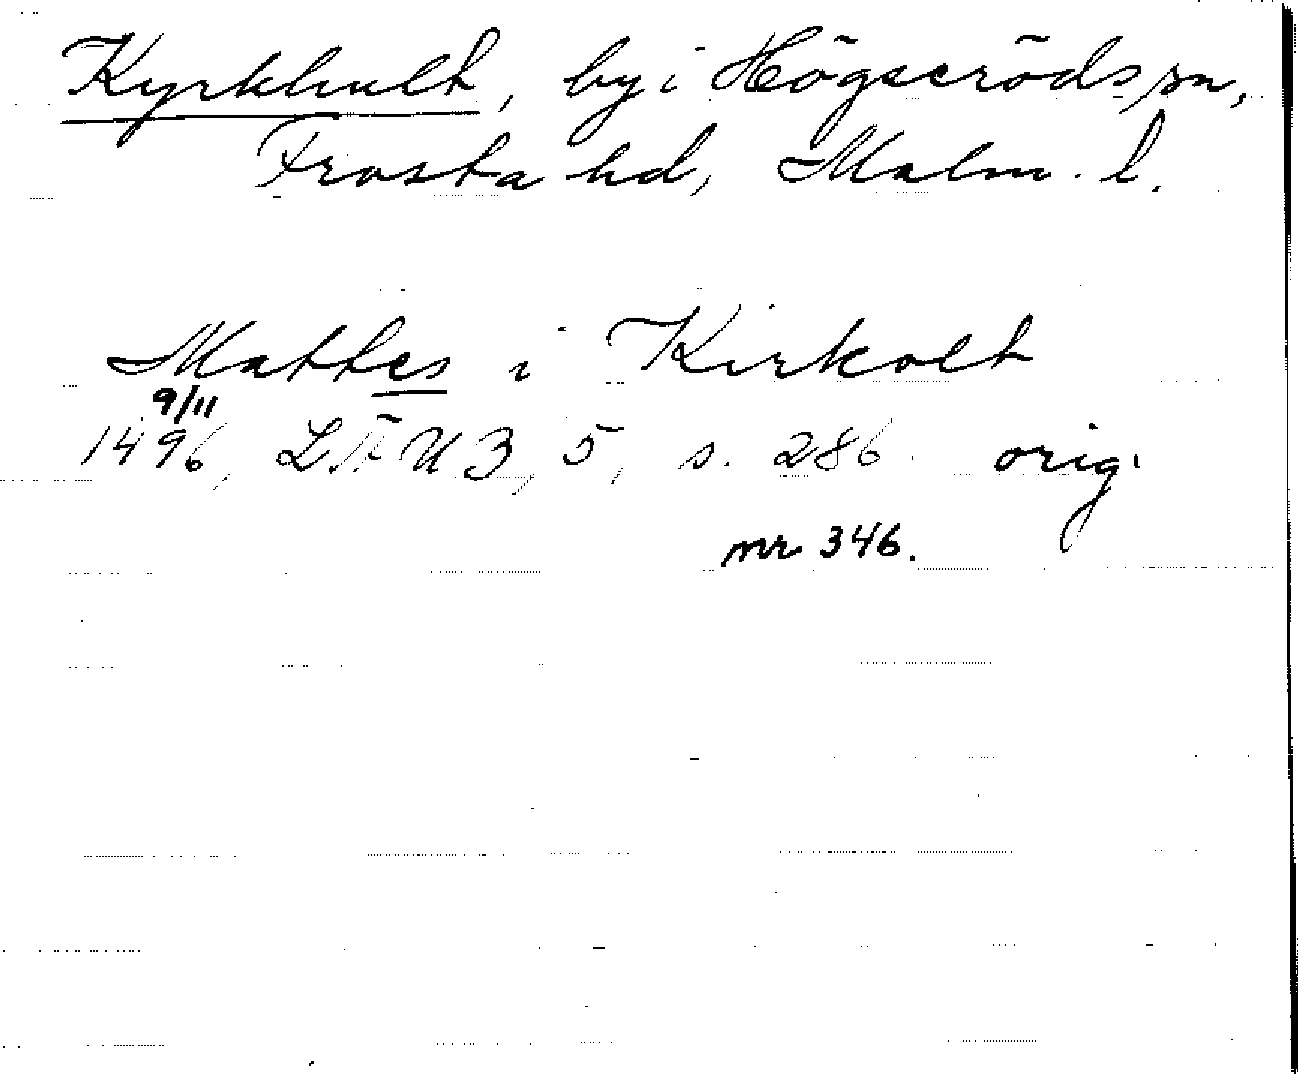 Kyrkhult, by i Högseröds sn,
Frosta hd, Malm. l.
Mattes i Kirkolt
9/11
1496, LÄUB, 5, s. 286. orig.
nr 346.